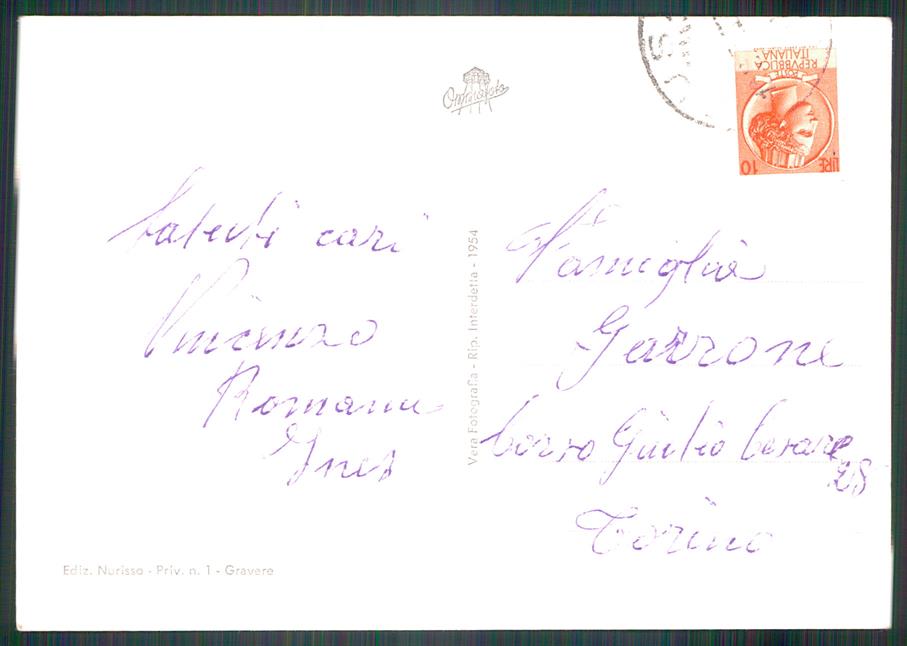 Saluti cari
Vincenzo
Romana
Ines
Ediz. Nurisso - Priv. n. 1 - Gravere
Vera Fotografia - Rip. Interdetta - 1954
REPVBBLICA
ITALIANA
POSTE
LIRE 10
Famiglia
Garrone
Corso Giulio Cesare
28
Torino